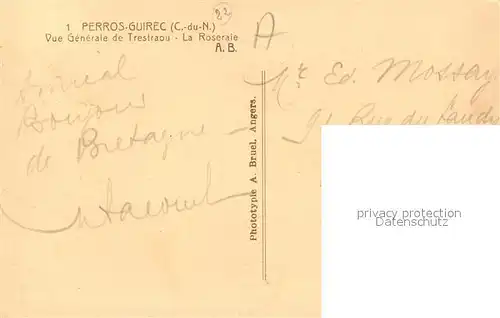 22
1 PERROS-GUIREC (C.-du-N.)
Vue Générale de Trestraou - La Roseraie
A. B.
A
Amical
Bonjour
de Bretagne
Phototypie A. Bruel, Angers.
Mr Ed. Mossay
91 Rue du
privacy protection
Datenschutz